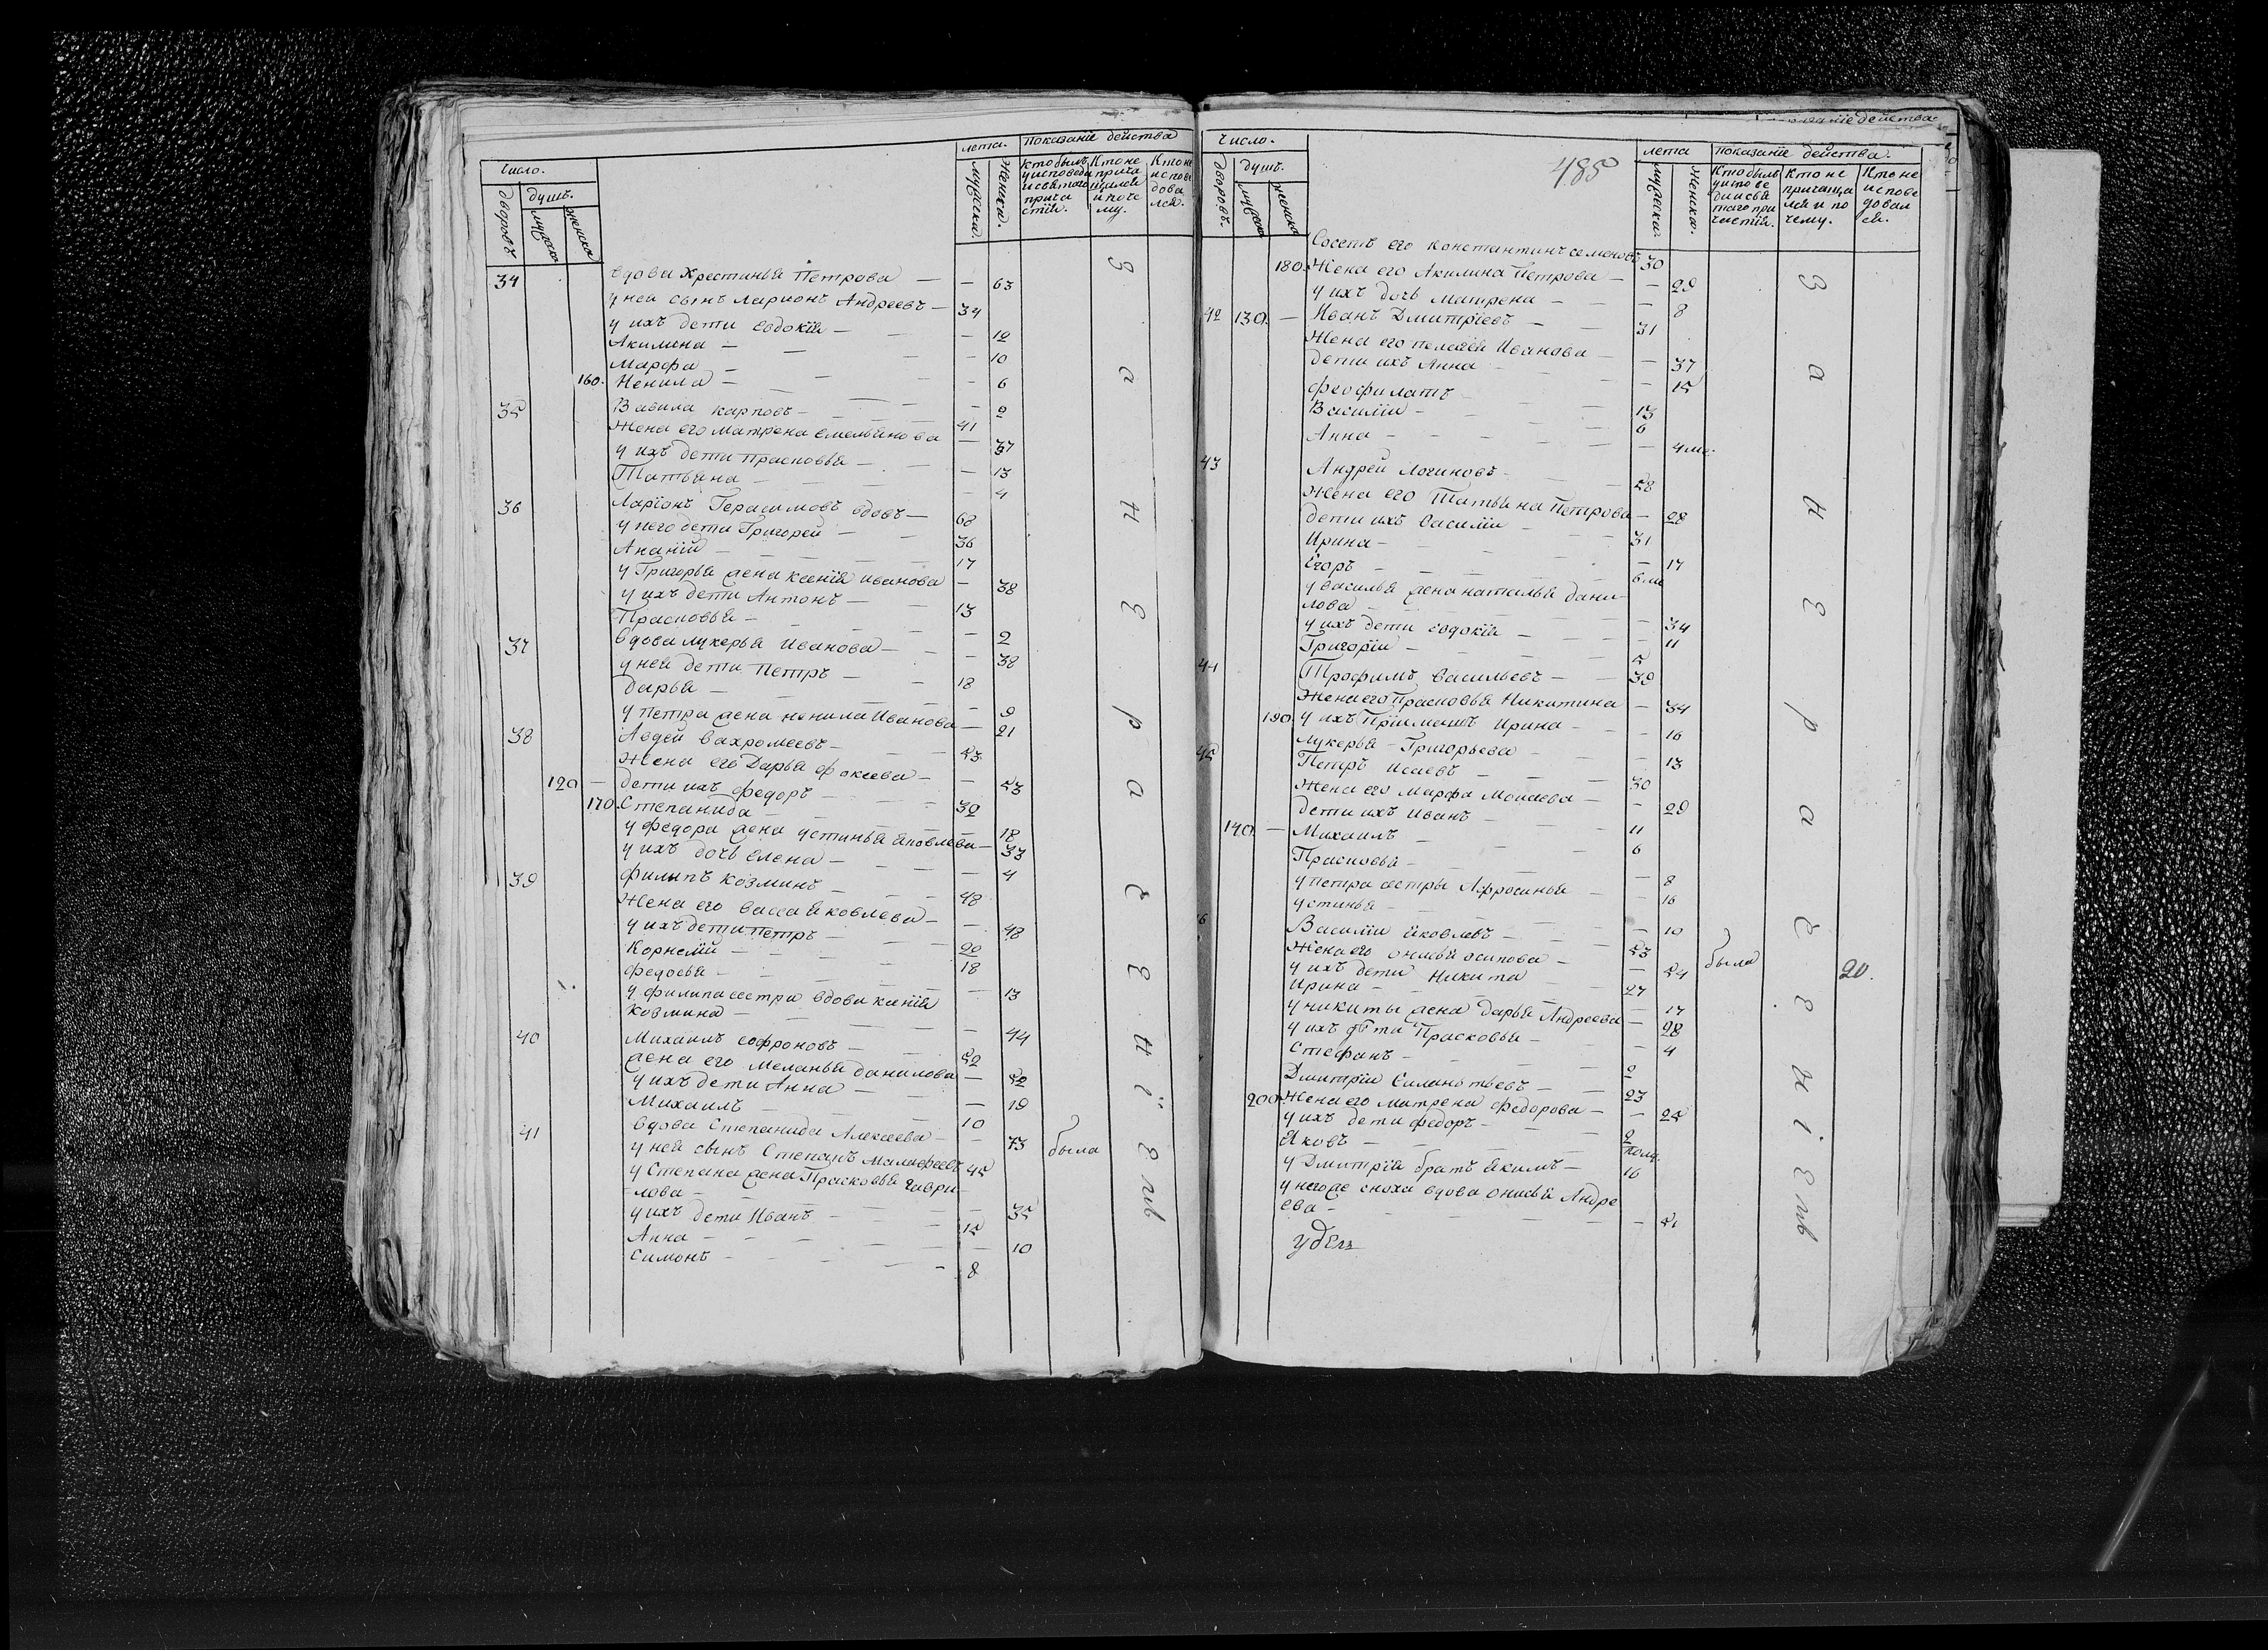 Число.
лета.
Показанїе действа
дворовъ
душъ.
мужска
женска
мужска.
Женска.
Кто былъ у исповеди и святаго причастїя.
Кто не причащался и почему.
Кто не исповедовался.
34 вдова Хрестинья Петрова — — 63
у ней сынъ Ларионъ Андреевъ — 34
у ихъ дети Евдокїя — — 12
Акилина — — 10
Марфа — — 6
160. Ненила — — 2
35 Вавила Карповъ — 41
Жена его Матрена Емельянова — 37
у ихъ дети Прасковья — — 13
Татьяна — — 4
36 Ларїонъ Герасимовъ вдовъ — 68
у него дети Григорей — 36
Ананїй — 17
у Григорья жена Ксенїя Иванова — 38
у ихъ дети Антонъ — 13
Прасковья — — 2
37 вдова Лукерья Иванова — — 38
у ней дети Петръ — 18
Дарья — — 9
у Петра жена Ненила Иванова — 21
38 Авдей Вахромеевъ — 53
Жена его Дарья Фокеева — — 53
120 — дети ихъ Федоръ — 32
170. Степанида — — 18
у Федора жена Устинья Яковлева — 33
у ихъ дочь Елена — — 4
39 Филипъ Козминъ — 48
Жена его Васса Яковлева — — 48
у ихъ дети Петръ — 20
Корнелїй — 18
Федосья — — 13
у Филипа сестра вдова Ксенїя
Козмина — — 44
40 Михаилъ Софроновъ — 52
жена его Меланья Данилова — 52
у ихъ дети Анна — — 19
Михаилъ — 10
41 вдова Степанида Алексеева — — 73 была
у ней сынъ Степанъ Малафеевъ 45
у Степана жена Прасковья Гаври-
лова — — 35
у ихъ дети Иванъ — 15
Анна — — 10
Симонъ — 8
за нерачениемъ
485
Число.
лета
показанїе действа.
дворовъ.
душъ.
мужска
женска
мужска.
Женска.
Кто былъ у исповеди и святаго причастїя.
Кто не причащался и по чему.
Кто не исповедовался.
Сосетъ его Константинъ Семеновъ 30
180. Жена его Акилина Петрова — — 29
у ихъ дочь Матрена — — 8
42 130. — Иванъ Дмитрїевъ — 31
Жена его Пелагея Иванова — — 37
дети ихъ Анна — — 15
Феофилатъ 13
Василїй — 6
Анна — — 4 ме.
43 Андрей Логиновъ — 58
Жена его Татьяна Петрова — 28
дети ихъ Василїй — 31
Ирина — — 17
Егоръ — 6 ме
у Василья жена Наталья Дани-
лова — — 34
у ихъ дети Евдокїя — — 11
Григорїй — 5
44 Трофимъ Васильевъ — 39
Жена его Прасковья Никитина — 34
190. у ихъ Прїимышъ Ирина — — 16
Лукерья Григорьева — — 13
45 Петръ Исаевъ — 30
Жена его Марфа Моисеева — — 29
дети ихъ Иванъ — 11
140. — Михаилъ — 6
Прасковья — — 8
у Петра сестры Афросинья — 16
Устинья — — 10
Василїй Яковлевъ — 53
Жена его Онисья Осипова — — 54 была 20.
у ихъ дети Никита 27
Ирина — — 17
у Никиты жена Дарья Андреева — 28
у ихъ дети Прасковья — — 4
Стефанъ — 2
Дмитрїй Силанотьевъ — 23
200. Жена его Матрена Федорова — — 25
у ихъ дети Федоръ — 2
Яковъ — полу.
у Дмитрїя братъ Якимъ — 16
у него же сноха вдова Онисья Андре
ева — — 51
за нерачениемъ